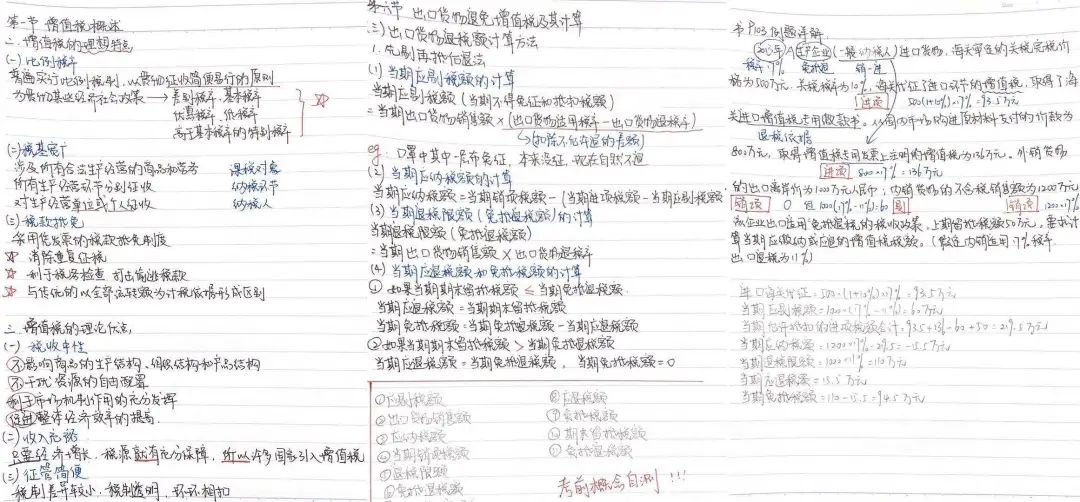 第一节 增值税概述
二、增值税的理想特点
(一) 比例税率
普遍实行比例税制,以贯彻征收简便易行的原则
为贯彻某些经济社会政策 → 差别税率、基本税率
优惠税率、低税率
高于基本税率的特别税率
(二) 税基宽广
涉及所有合法生产经营的商品和劳务 课税对象
所有生产经营环节分别征收 纳税环节
对生产经营单位或个人征收 纳税人
(三) 税款抵免
采用凭发票的税款抵免制度
☆ 消除重复征税
☆ 利于税务检查 打击偷逃税款
☆ 与传统的以全部流转额为计税依据形成区别
三、增值税的理论优点
(一) 税收中性
不影响商品的生产结构、组织结构和产品结构
不干扰资源的自由配置
利于市场机制作用的充分发挥
促进整体经济效率的提高
(二) 收入充裕
只要经济增长,税源就有充分保障,所以许多国家引入增值税
(三) 征管简便
税制差异较小,税制透明,环环相扣
第六节 出口货物退免增值税及其计算
(三) 出口货物退税额计算方法
1. 先剔再抵后退法
(1) 当期应剔税额的计算
当期应剔税额 (当期不得免征和抵扣税额)
= 当期出口货物销售额 × (出口货物适用税率 - 出口货物退税率)
(扣除不允许退的差额)
eg:
(2) 当期应纳税额的计算
当期应纳税额 = 当期销项税额 - (当期进项税额 - 当期应剔税额)
(3) 当期退税限额 (免抵退税额) 的计算
当期退税限额 (免抵退税额)
= 当期出口货物销售额 × 出口货物退税率
(4) 当期应退税额和免抵税额的计算
① 如果当期期末留抵税额 ≤ 当期免抵退税额
当期应退税额 = 当期期末留抵税额
当期免抵税额 = 当期免抵退税额 - 当期应退税额
② 如果当期期末留抵税额 > 当期免抵退税额
当期应退税额 = 当期免抵退税额, 当期免抵税额 = 0
① 应剔税额
② 出口货物销售额
③ 应纳税额
④ 当期销项税额
⑤ 退税限额
⑥ 免抵退税额
⑧ 应退税额
⑨ 免抵税额
⑩ 期末留抵税额
⑪ 免抵退税额
考前概念自测!!!
书P103 例题详解
A生产企业 (一般纳税人) 进口货物,海关审定的关税完税价
税率:17% 免抵退
格为500万元,关税税率为10%,海关代征了进口环节的增值税,取得了海
进项 500(1+10%)×17% = 93.5万元
关进口增值税专用缴款书。从国内市场购进原材料支付的价款为
退税依据
800万元,取得增值税专用发票上注明的增值税为136万元,外销货物
进项 800×17% = 136万元
的出口离岸价为1000万元人民币;内销货物的不含税销售额为1200万元
销项 0 但 1000(17%-11%)=60 剔 销项 1200×17%
该企业出口适用"免抵退"的税收政策,上期留抵税额50万元,要求计
算当期应缴纳或应退的增值税税额。(假定内销适用17%税率
出口退税为11%)
进口海关代征 = 500×(1+10%)×17% = 93.5万元
当期应剔税额 = 1000×(17%-11%) = 60万元
当期允许抵扣的进项税额合计 = 93.5+136-60+50 = 219.5万元
当期应纳税额 = 1200×17% - 219.5 = -15.5万元
当期退税限额 = 1000×11% = 110万元
当期应退税额 = 15.5万元
当期免抵税额 = 110-15.5 = 94.5万元